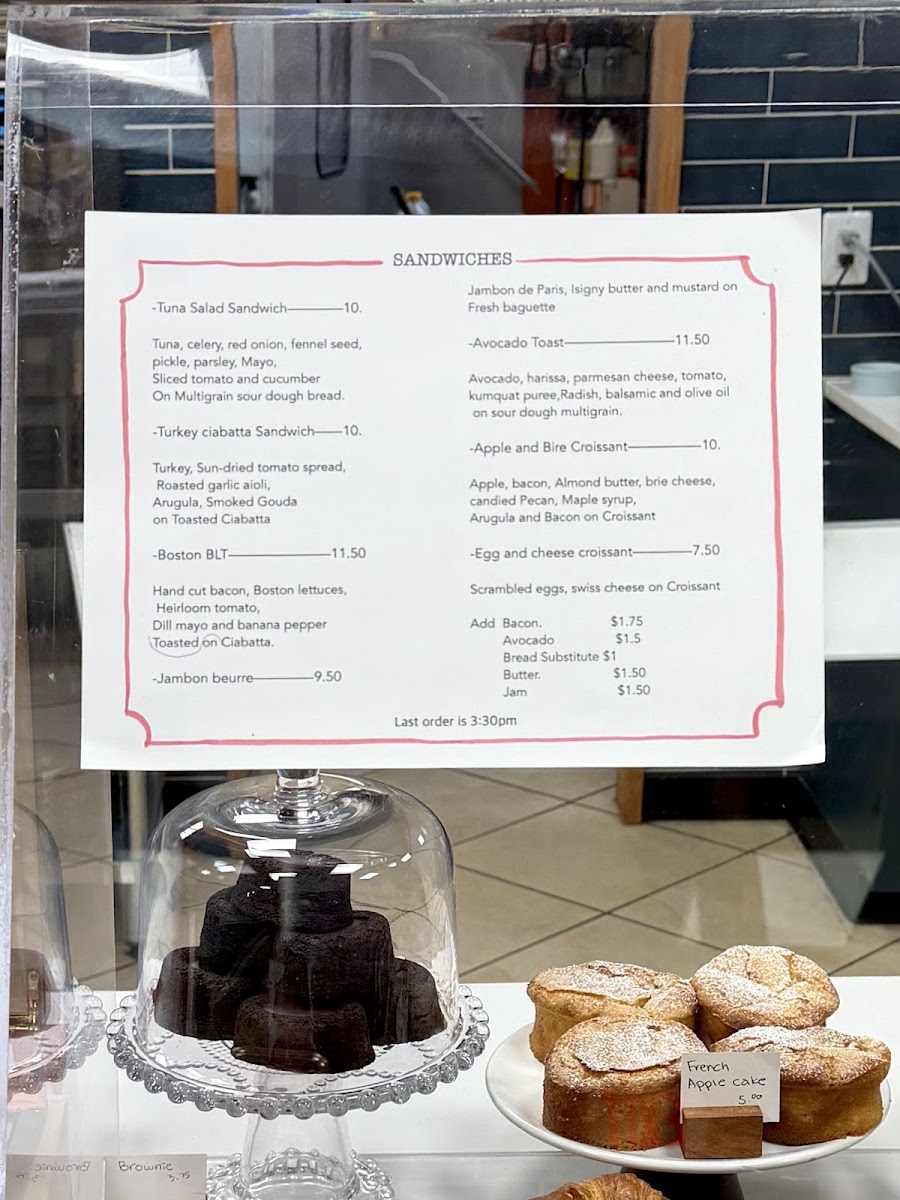 SANDWICHES
-Tuna Salad Sandwich————10.
Tuna, celery, red onion, fennel seed,
pickle, parsley, Mayo,
Sliced tomato and cucumber
On Multigrain sour dough bread.
-Turkey ciabatta Sandwich——10.
Turkey, Sun-dried tomato spread,
Roasted garlic aioli,
Arugula, Smoked Gouda
on Toasted Ciabatta
-Boston BLT———————11.50
Hand cut bacon, Boston lettuces,
Heirloom tomato,
Dill mayo and banana pepper
Toasted on Ciabatta.
-Jambon beurre————9.50
Jambon de Paris, Isigny butter and mustard on
Fresh baguette
-Avocado Toast————————11.50
Avocado, harissa, parmesan cheese, tomato,
kumquat puree,Radish, balsamic and olive oil
on sour dough multigrain.
-Apple and Bire Croissant—————10.
Apple, bacon, Almond butter, brie cheese,
candied Pecan, Maple syrup,
Arugula and Bacon on Croissant
-Egg and cheese croissant————7.50
Scrambled eggs, swiss cheese on Croissant
Add Bacon. $1.75
Avocado $1.5
Bread Substitute $1
Butter. $1.50
Jam $1.50
Last order is 3:30pm
French
Apple cake
5.00
Brownie
3.75